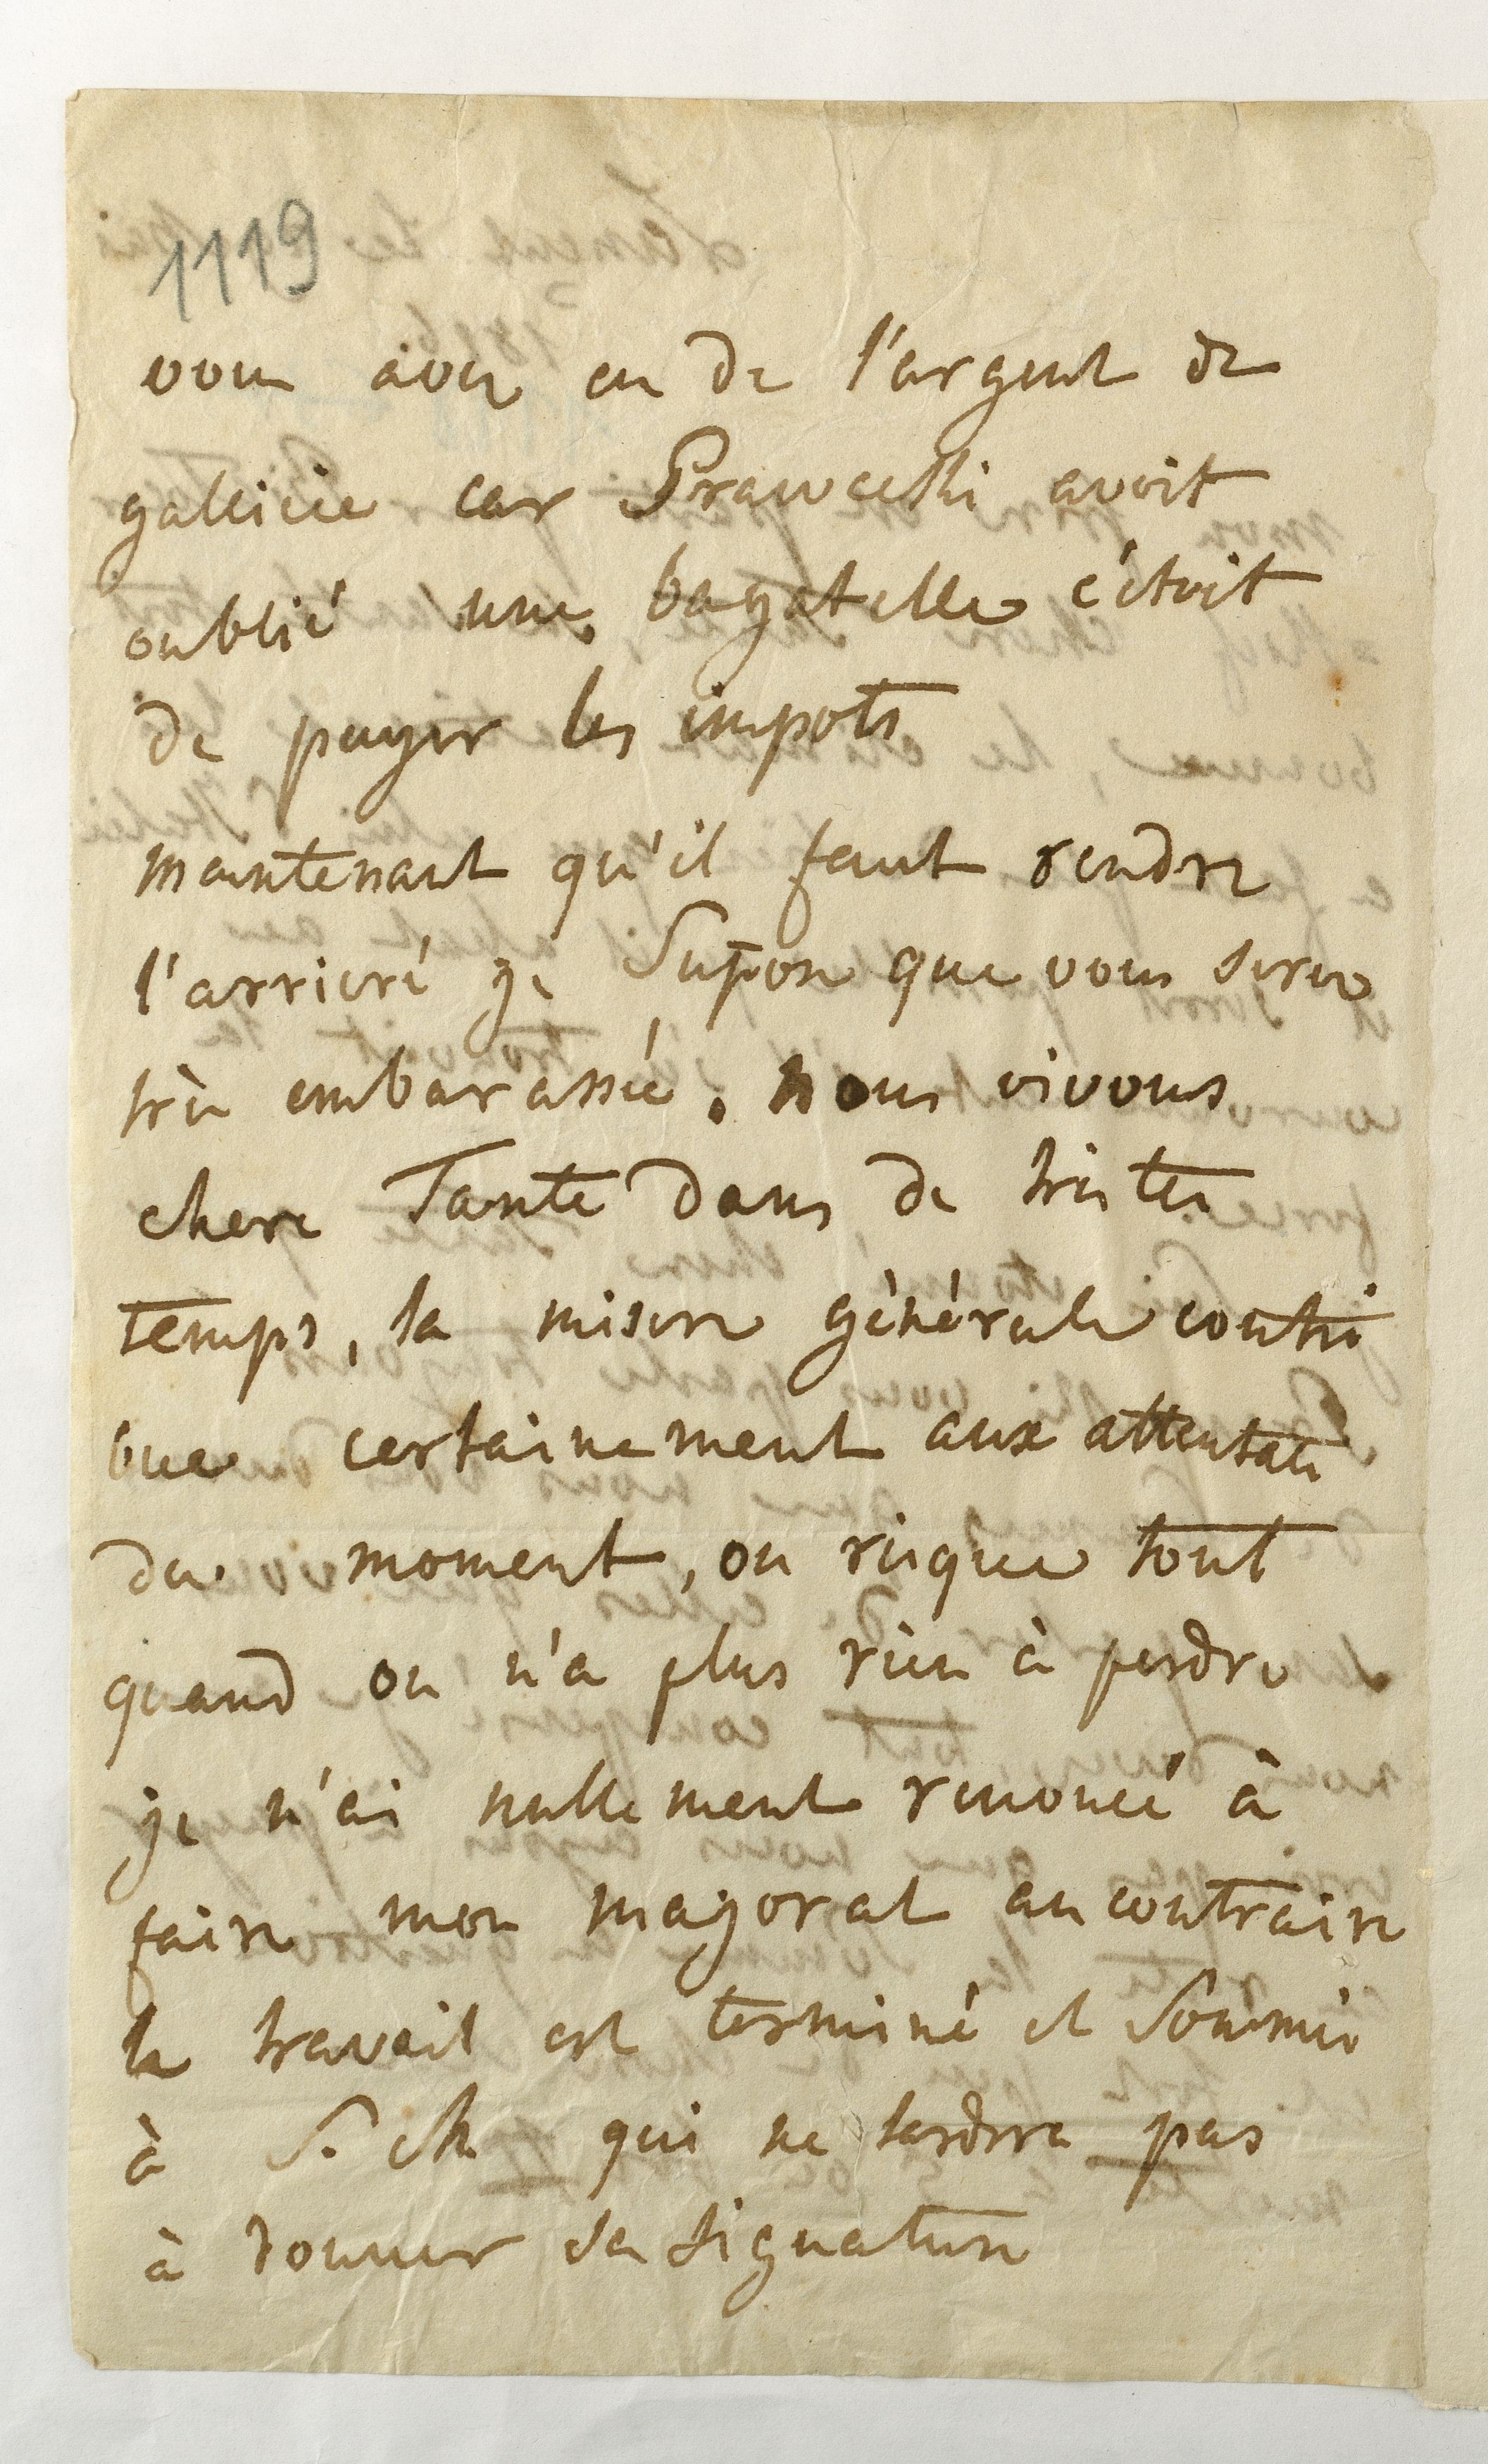 1119
vous avez eu de l'argent de
gallicie car Prawecki avoit
oublié une bagatelle c'étoit
de payer les impots
maintenant qu'il faut rendre
l'arrieré je supose que vous serez
très embarassée. nous vivons
chere Tante dans de tristes
temps, la misere générale contri
bue certainement aux attentats
du moment, on risque tout
quand on n'a plus rien à perdre
je n'ai nullement renoncé à
faire mon mayorat au contraire
le travail est terminé et soumis
à S. M. qui ne tardera pas
à donner sa signature